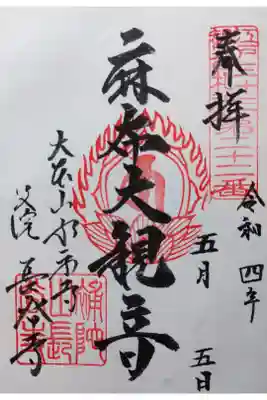 奉拝
令和四年
五月五日
麻布大観音
大本山永平寺
別院 長谷寺